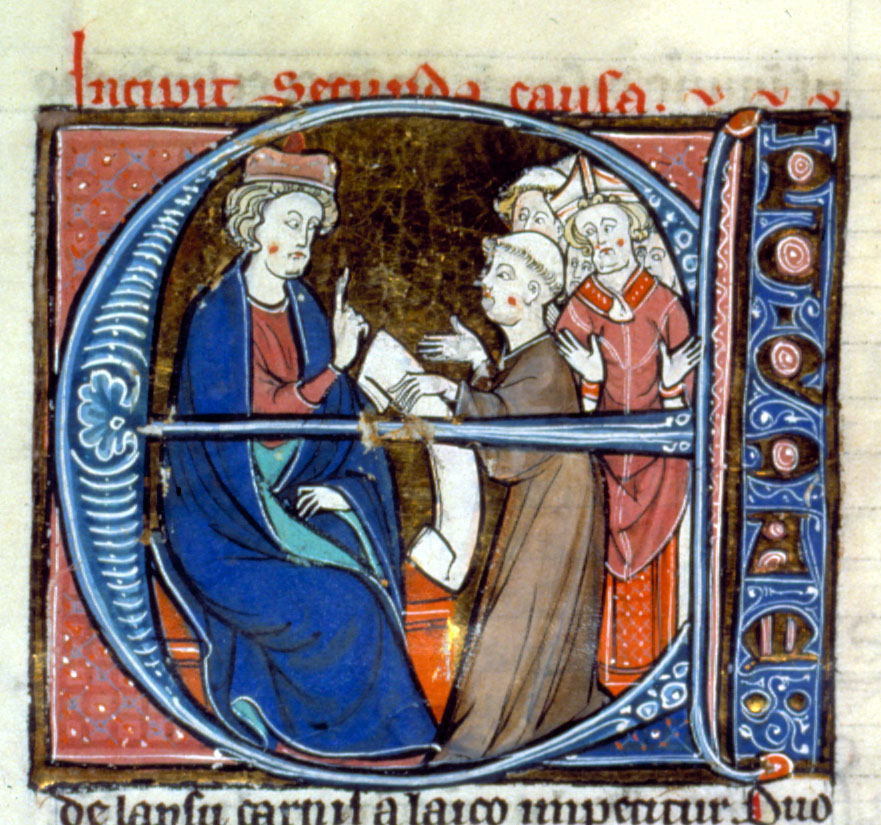 Incipit Secunda causa.
de lapsu carnis a laico impetitur. Duo